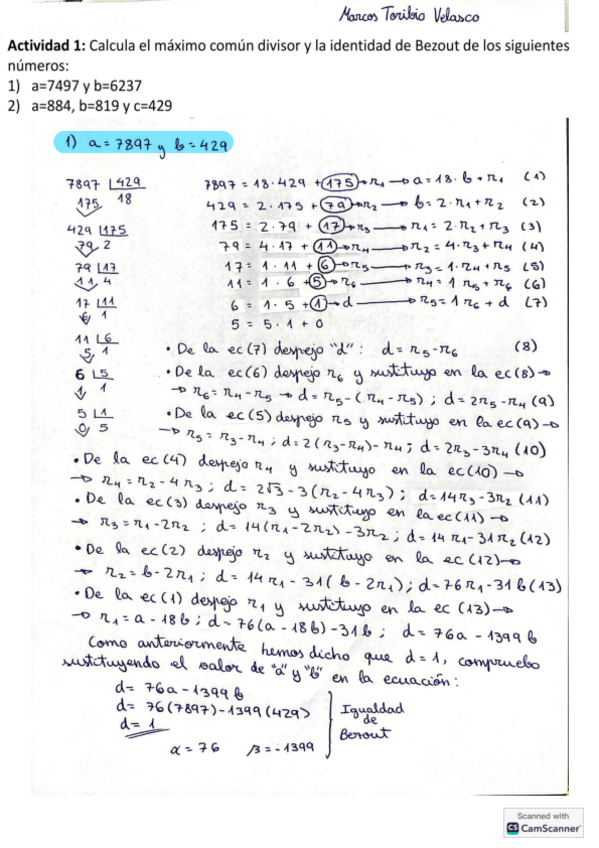 Marcos Toribio Velasco
Actividad 1: Calcula el máximo común divisor y la identidad de Bezout de los siguientes
números:
1) a=7497 y b=6237
2) a=884, b=819 y c=429
1) a = 7897 y b = 429
7897 |429
175 18
429 |175
79 2
79 |17
11 4
17 |11
6 1
11 |6
5 1
6 |5
1 1
5 |1
0 5
7897 = 18·429 + 175 → r₁ → a = 18·b + r₁ (1)
429 = 2·175 + 79 → r₂ → b = 2·r₁ + r₂ (2)
175 = 2·79 + 17 → r₃ → r₁ = 2·r₂ + r₃ (3)
79 = 4·17 + 11 → r₄ → r₂ = 4·r₃ + r₄ (4)
17 = 1·11 + 6 → r₅ → r₃ = 1·r₄ + r₅ (5)
11 = 1·6 + 5 → r₆ → r₄ = 1 r₅ + r₆ (6)
6 = 1·5 + 1 → d → r₅ = 1 r₆ + d (7)
5 = 5·1 + 0
• De la ec(7) despejo "d": d = r₅ - r₆ (8)
• De la ec(6) despejo r₆ y sustituyo en la ec(8) →
→ r₆ = r₄ - r₅ → d = r₅ - (r₄ - r₅) ; d = 2r₅ - r₄ (9)
• De la ec(5) despejo r₅ y sustituyo en la ec(9) →
→ r₅ = r₃ - r₄ ; d = 2(r₃ - r₄) - r₄ ; d = 2r₃ - 3r₄ (10)
• De la ec(4) despejo r₄ y sustituyo en la ec(10) →
→ r₄ = r₂ - 4r₃ ; d = 2√3 - 3(r₂ - 4r₃) ; d = 14r₃ - 3r₂ (11)
• De la ec(3) despejo r₃ y sustituyo en la ec(11) →
→ r₃ = r₁ - 2r₂ ; d = 14(r₁ - 2r₂) - 3r₂ ; d = 14 r₁ - 31 r₂ (12)
• De la ec(2) despejo r₂ y sustituyo en la ec(12) →
→ r₂ = b - 2r₁ ; d = 14 r₁ - 31(b - 2r₁) ; d = 76 r₁ - 31 b (13)
• De la ec(1) despejo r₁ y sustituyo en la ec (13) →
→ r₁ = a - 18b ; d = 76(a - 18b) - 31b ; d = 76a - 1399 b
Como anteriormente hemos dicho que d = 1, compruebo
sustituyendo el valor de "a" y "b" en la ecuación:
d = 76a - 1399 b
d = 76(7897) - 1399(429)
d = 1
α = 76 β = -1399
Igualdad
de
Bezout
Scanned with
CS CamScanner